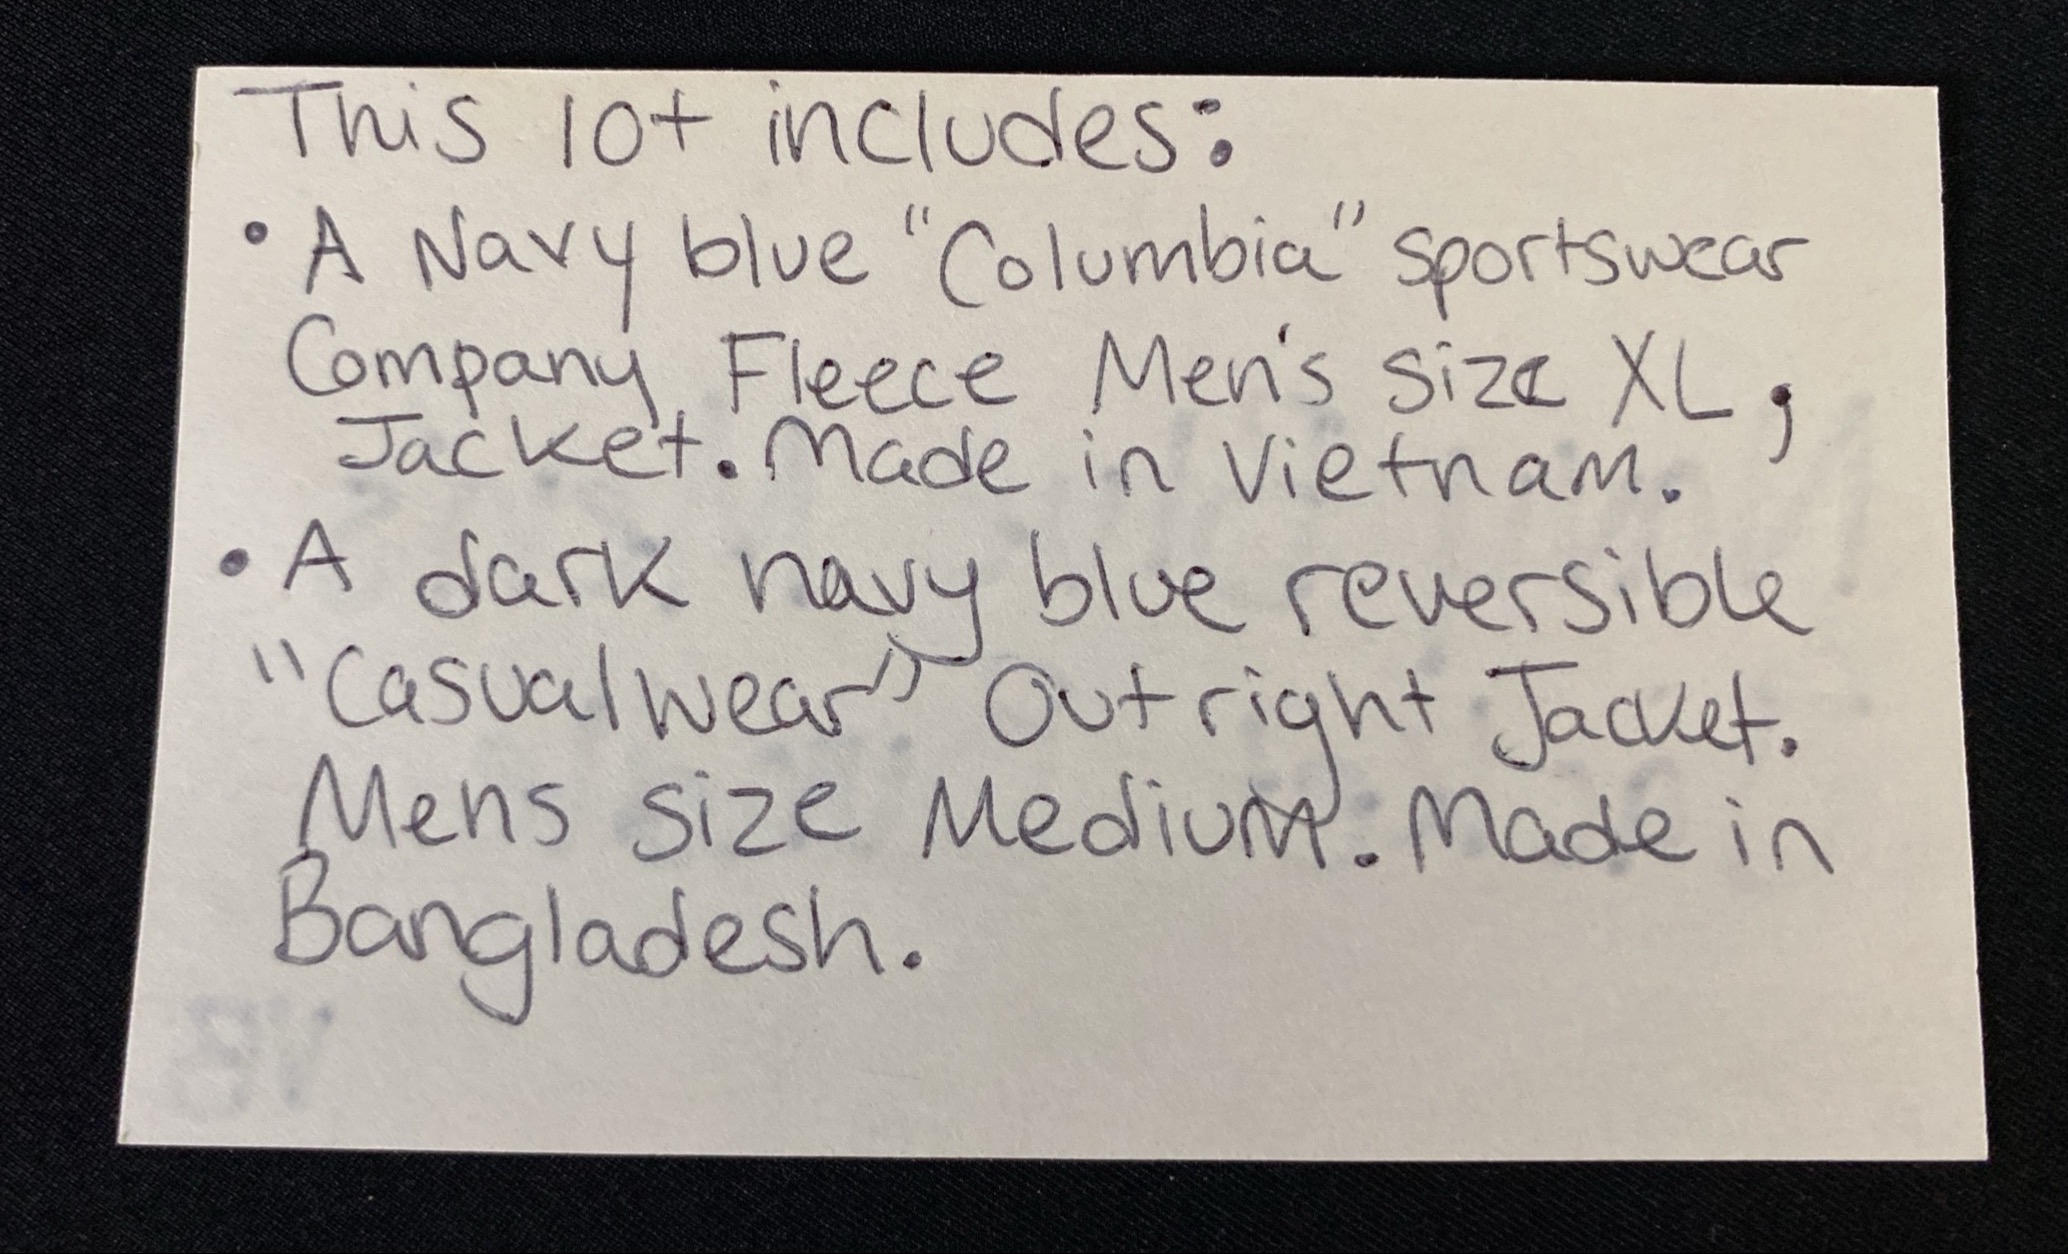 This lot includes:
• A Navy blue "Columbia" sportswear
Company Fleece Men's size XL,
Jacket. Made in Vietnam.
• A dark navy blue reversible
"Casualwear" Outright Jacket.
Mens size Medium. Made in
Bangladesh.